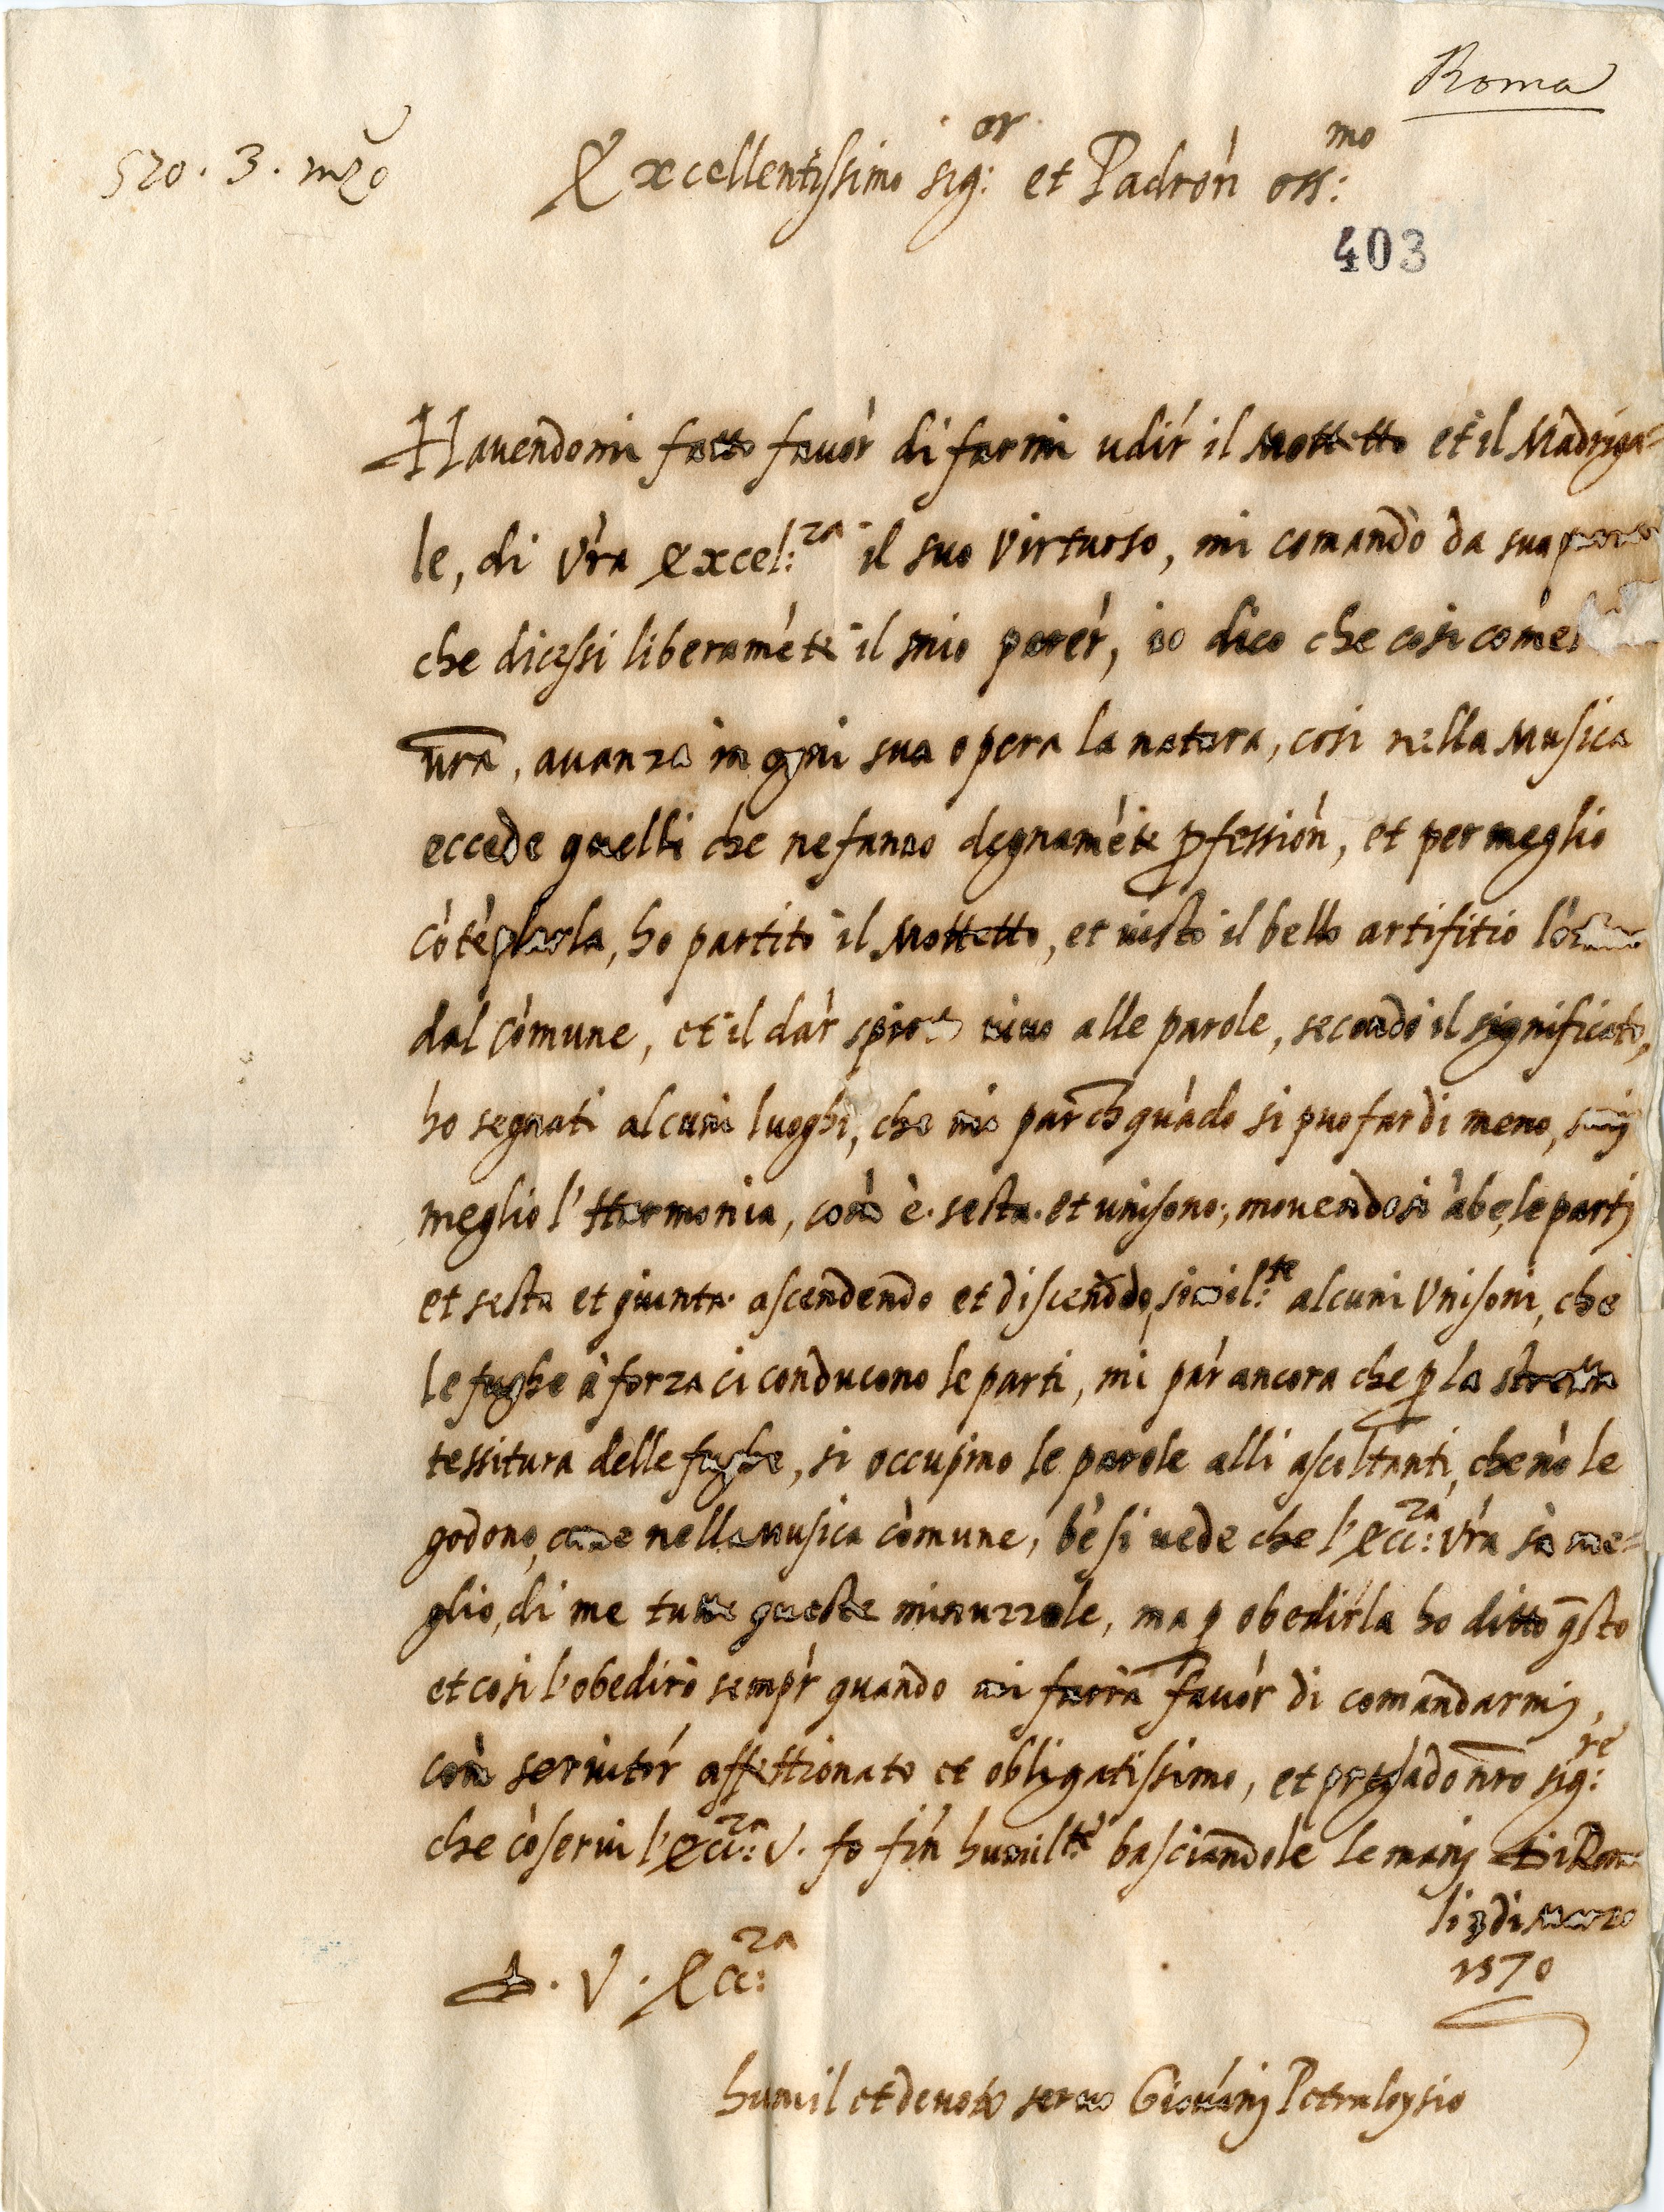 Roma
570. 3. mzo
Excellentissimo sig:or et Padron oss:mo
403
Havendomi fatto favor di farmi udir il Mottetto et il Madriga=
le, di v'ra Excel:za il suo virtuoso, mi comandò da sua
che dicessi liberamẽte il mio parer, io dico che cosi come
vr̃a, avanza in ogni sua opera la natura, cosi nella Musica
eccede quelli che ne fanno degnamẽte pfession, et per meglio
cõtẽplarla, ho partito il Mottetto, et visto il bello artifitio
dal comune, et il dar spirto vivo alle parole, secondo il significato,
ho segnati alcuni luoghi, che mi par ch quãdo si puo far di meno,
meglio l'Harmonia, com è. sesta. et unisono:, movendosi ãbe, le parti
et sesta et quinta. ascendendo et discendẽdo, simil:te alcuni Unisoni, che
le fughe à forza ci conducono le parti, mi par ancora che p la stretta
tessitura delle fughe, si occupino le parole alli ascoltanti, che nõ le
godono, come nella Musica comune, bẽ si vede che l'Ecc:za v'ra sà me=
glio, di me tutte queste minuzzole, ma p obedirla ho ditto q̃sto
et cosi l'obedirò semp'r quando mi farrà favor di comandarmi,
com servitor affettionato et obligatissimo, et pregãdo nr̃o sig:re
che cõservi l'Ecc:za V. fo fin humil:te basciandole le mani Di Roma
li 3 di Marzo
1570
D. V. Ecc:za
humil et devoto servo Giovãni Petraloysio